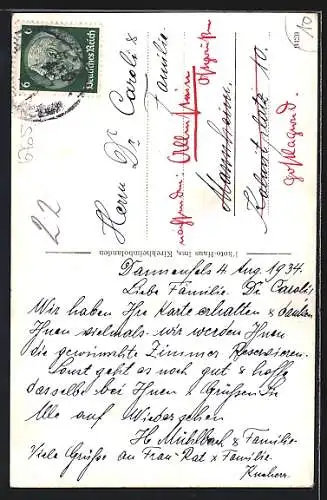 6
Deutsches Reich
6
10
22
Herrn Dr. Caroli &
Familie
nachsenden Allenstein
Ostpreußen
Mannheim
10.
postlagernd.
Photo-Haus Kirchheimbolanden
Dannenfels 4 Aug. 1934.
Liebe Familie Dr Caroli
Wir haben Ihre Karte erhalten & danken
Ihnen vielmals wir werden Ihnen
die gewünschte Zimmer Reservieren.
Sonst geht es noch gut & hoffe
dasselbe bei Ihnen & Grüßen Sie
Alle auf Wiedersehen
H. Mühlbach & Familie
Viele Grüße an Frau Rat & Familie